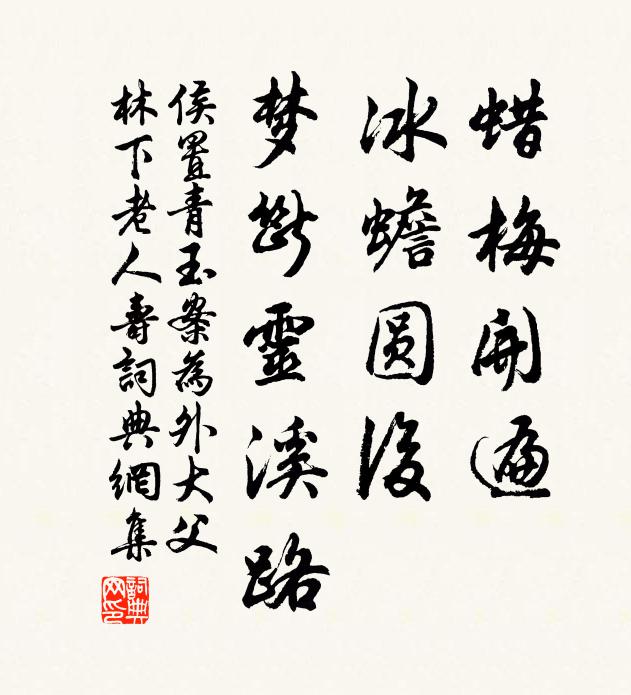 蜡梅開遍
冰蟾圓後
梦斷靈溪路
侯置青玉案為外大父
林下老人壽詞典網集
詞典網印